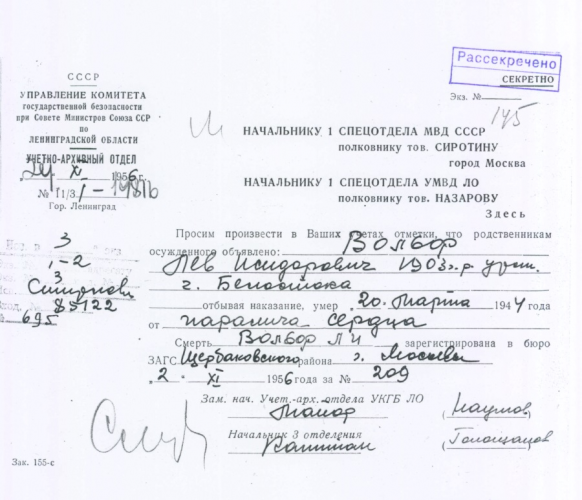 Рассекречено
СЕКРЕТНО
Экз. №
145
СССР
УПРАВЛЕНИЕ КОМИТЕТА
государственной безопасности
при Совете Министров Союза ССР
по
ЛЕНИНГРАДСКОЙ ОБЛАСТИ
УЧЕТНО-АРХИВНЫЙ ОТДЕЛ
XI 1956 г.
№ 11/3
Гор. Ленинград
НАЧАЛЬНИКУ 1 СПЕЦОТДЕЛА МВД СССР
полковнику тов. СИРОТИНУ
город Москва
НАЧАЛЬНИКУ 1 СПЕЦОТДЕЛА УМВД ЛО
полковнику тов. НАЗАРОВУ
Здесь
3
1-2
3
Смирнов
85122
695
Просим произвести в Ваших учетах отметки, что родственникам
осужденного объявлено: Волбор
Лев Исидорович 1903 г.р. урож.
г. Белостока
отбывая наказание, умер 20 марта 1944 года
от паралича сердца
Смерть Волбор Л И зарегистрирована в бюро
ЗАГС Щербаковского района г. Москвы
„2" XI 1956 года за № 209
Зам. нач. Учет.-арх. отдела УКГБ ЛО
Майор (Наумов)
Начальник 3 отделения
Капитан
Зак. 155-с